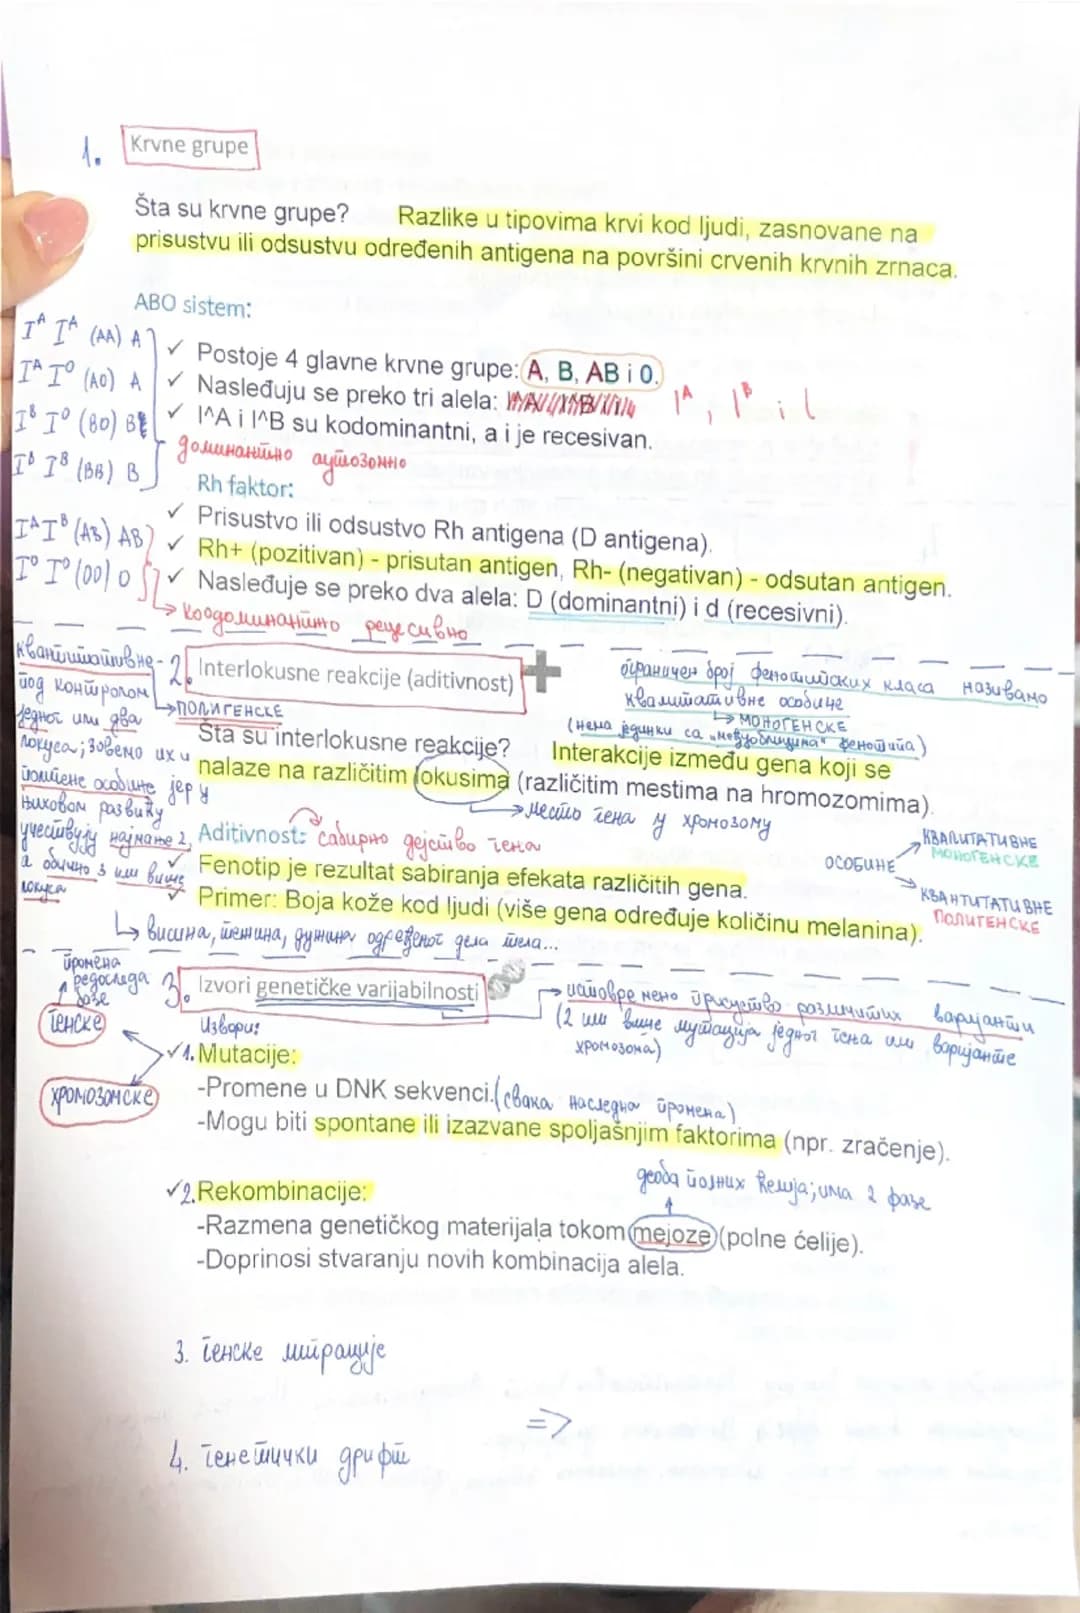 1. Krvne grupe
Šta su krvne grupe? Razlike u tipovima krvi kod ljudi, zasnovane na
prisustvu ili odsustvu određenih antigena na površini crvenih krvnih zrnaca.
ABO sistem:
I^A I^A (AA) A
I^A I^O (AO) A
I^B I^O (BO) B
I^B I^B (BB) B
✓ Postoje 4 glavne krvne grupe: A, B, AB i 0.
✓ Nasleđuju se preko tri alela: I^A, I^B i i
✓ I^A i I^B su kodominantni, a i je recesivan.
доминантно аутозомно
Rh faktor:
✓ Prisustvo ili odsustvo Rh antigena (D antigena).
I^A I^B (AB) AB
I^O I^O (OO) O
✓ Rh+ (pozitivan) - prisutan antigen, Rh- (negativan) - odsutan antigen.
✓ Nasleđuje se preko dva alela: D (dominantni) i d (recesivni).
кодоминантно рецесивно
2. Interlokusne reakcije (aditivnost)
квантитативне-
под контролом
једног или два
локуса; зовемо их и
полигене особине јер у
њиховом развићу
учествују најмање 2,
а обично 3 или више
локуса
ПОЛИГЕНСКЕ
ограничен број фенотипских класа називамо
квалитативне особине
МОНОГЕНСКЕ
(нема јединки са „међуоблицима" фенотипа)
Šta su interlokusne reakcije? Interakcije između gena koji se
nalaze na različitim lokusima (različitim mestima na hromozomima).
место гена у хромозому
Aditivnost: сабирно дејство гена
✓ Fenotip je rezultat sabiranja efekata različitih gena.
✓ Primer: Boja kože kod ljudi (više gena određuje količinu melanina).
ОСОБИНЕ
КВАЛИТАТИВНЕ
МОНОГЕНСКЕ
КВАНТИТАТИВНЕ
ПОЛИГЕНСКЕ
висина, тежина, дужина одређеног дела тела...
3. Izvori genetičke varijabilnosti
истовремено присуство различитих варијанти
(2 или више мутација једног гена или варијанте
хромозома)
промена
редоследа
базе
генске
хромозомске
Извори:
✓1. Mutacije:
-Promene u DNK sekvenci. (свака наследна промена)
-Mogu biti spontane ili izazvane spoljašnjim faktorima (npr. zračenje).
деоба полних ћелија; има 2 фазе
✓2. Rekombinacije:
-Razmena genetičkog materijala tokom mejoze (polne ćelije).
-Doprinosi stvaranju novih kombinacija alela.
3. генске миграције
=>
4. генетички дрифт